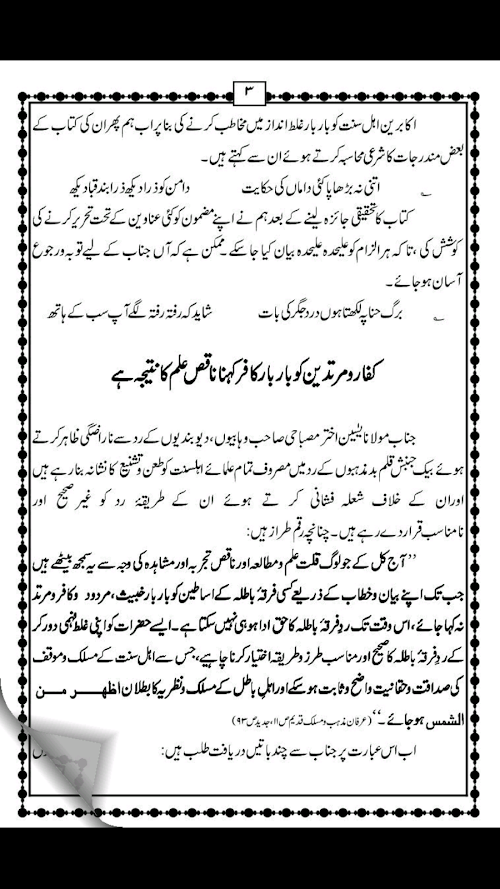 ۳
اکابرین اہل سنت کو بار بار غلط انداز میں مخاطب کرنے کی بنا پر اب ہم پھر ان کی کتاب کے
بعض مندرجات کا شرعی محاسبہ کرتے ہوئے ان سے کہتے ہیں۔
؎ اتنی نہ بڑھا پاکئی داماں کی حکایت دامن کو ذرا دیکھ ذرا بند قبا دیکھ
کتاب کا تحقیقی جائزہ لینے کے بعد ہم نے اپنے مضمون کو کئی عناوین کے تحت تحریر کرنے کی
کوشش کی، تا کہ ہر الزام کو علیحدہ علیحدہ بیان کیا جا سکے۔ ممکن ہے کہ آں جناب کے لیے توبہ و رجوع
آسان ہو جائے۔
؎ برگ حنا پہ لکھتا ہوں درد جگر کی بات شاید کہ رفتہ رفتہ لگے آپ سب کے ہاتھ
کفار و مرتدین کو بار بار کافر کہنا ناقص علم کا نتیجہ ہے
جناب مولانا یٰسین اختر مصباحی صاحب وہابیوں، دیوبندیوں کے رد سے ناراضگی ظاہر کرتے
ہوئے بیک جنبش قلم بد مذہبوں کے رد میں مصروف تمام علمائے اہلسنت کو طعن و تشنیع کا نشانہ بنا رہے ہیں
اور ان کے خلاف شعلہ فشانی کر تے ہوئے ان کے طریقۂ رد کو غیر صحیح اور
نا مناسب قرار دے رہے ہیں۔ چنانچہ رقم طراز ہیں:
’’آج کل کے جو لوگ قلت علم و مطالعہ اور ناقص تجربہ اور مشاہدہ کی وجہ سے یہ سمجھ بیٹھے ہیں
جب تک اپنے بیان و خطاب کے ذریعے کسی فرقۂ باطلہ کے اساطین کو بار بار خبیث، مردود و کافر و مرتد
نہ کہا جائے، اس وقت تک ردِ فرقۂ باطلہ کا حق ادا ہو ہی نہیں سکتا ہے۔ ایسے حضرات کو اپنی غلط فہمی دور کر
کے ردِ فرقۂ باطلہ کا صحیح اور مناسب طرز و طریقہ اختیار کرنا چاہیے، جس سے اہل سنت کے مسلک و موقف
کی صداقت و حقانیت واضح و ثابت ہو سکے اور اہلِ باطل کے مسلک و نظریہ کا بطلان اظہر من
الشمس ہو جائے۔‘‘ (عرفان مذہب و مسلک قدیم ص ۱۱، جدید ص ۹۳)
اب اس عبارت پر جناب سے چند باتیں دریافت طلب ہیں: